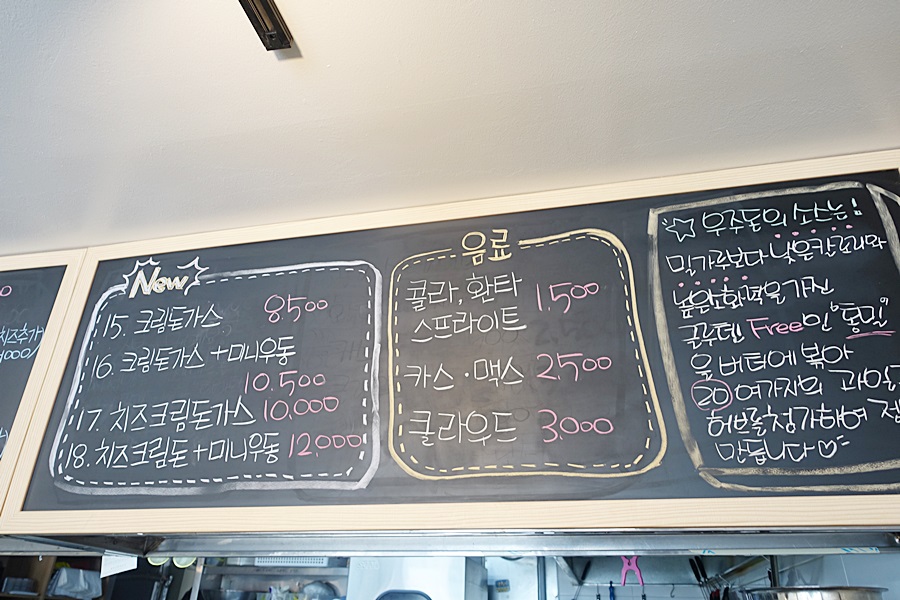 치즈추가
New
15. 크림돈가스 8500
16. 크림돈가스+미니우동
10.500
17. 치즈크림돈가스 10,000
18. 치즈크림돈+미니우동 12,000
음료
콜라, 환타
스프라이트 1.500
카스·맥스 2,500
클라우드 3.000
☆우주돈의 소스는!
밀가루보다 낮은칼로리와
높은소화력을가진
글루텐 Free인 "통밀"
을 버터에 볶아
20여가지의 과일
허브를첨가하여
만듭니다♡